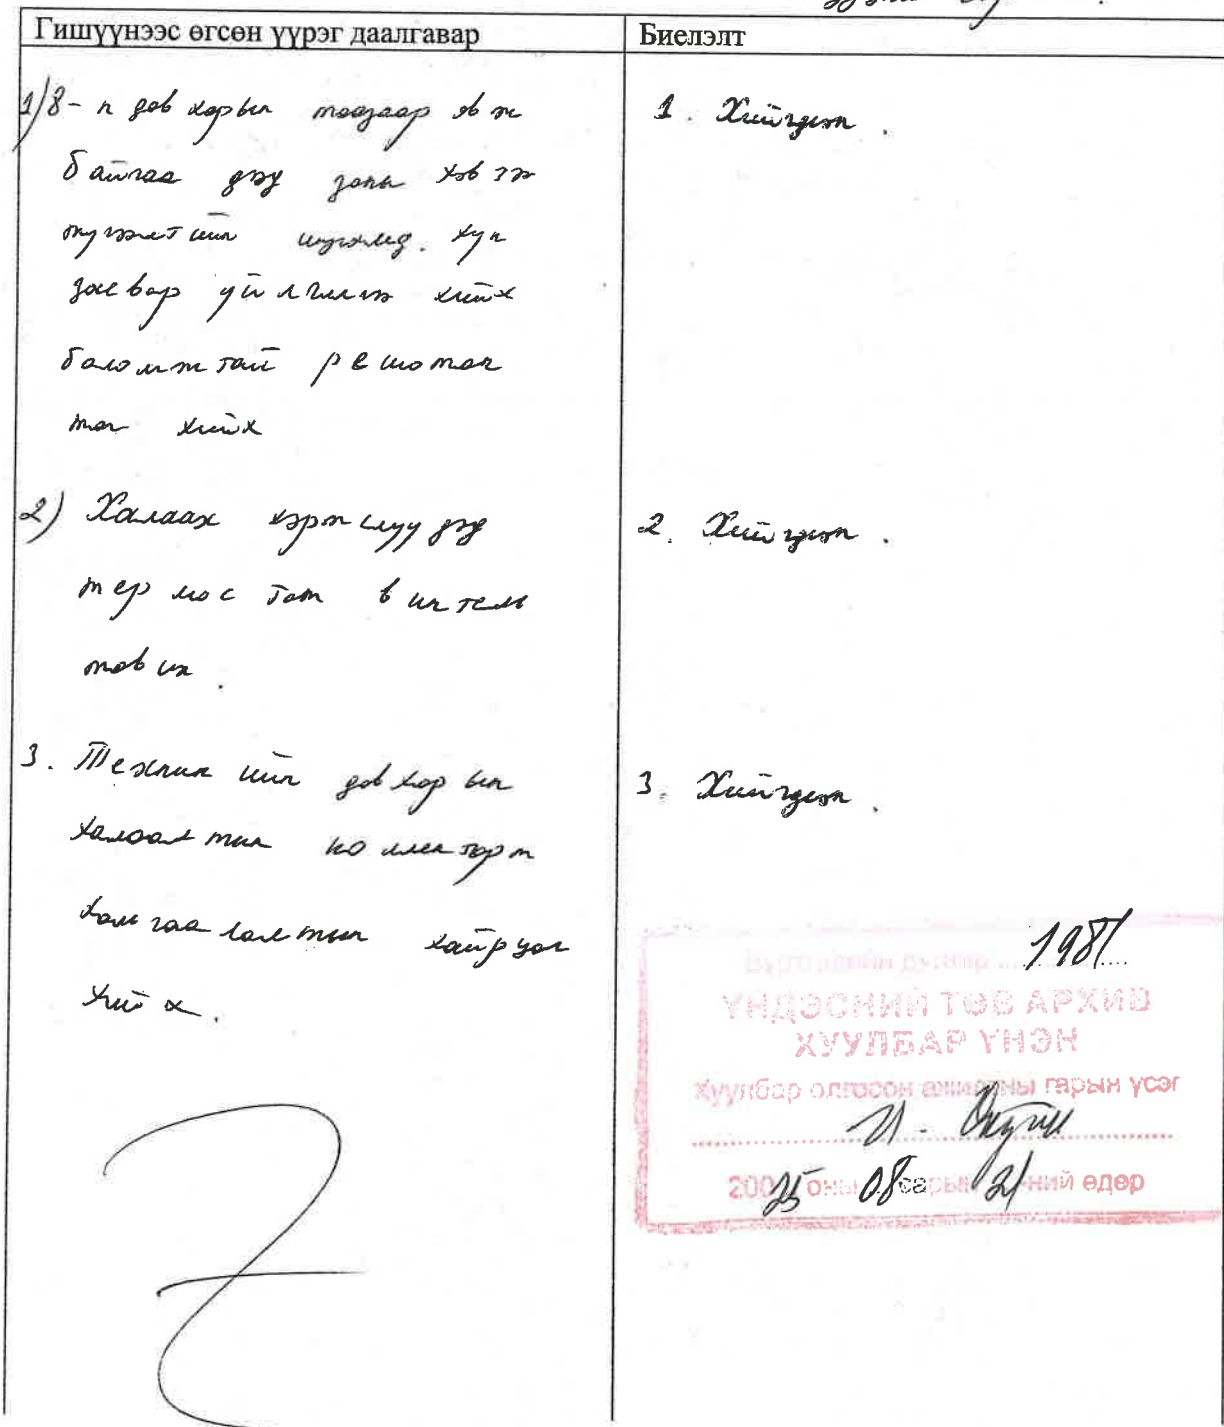 Гишүүнээс өгсөн үүрэг даалгавар
Биелэлт
1/8-н давхарын таазаар явж
байгаа дэд зоны хэвтээ
түгээлтийн шугамд. хүн
засвар үйлчилгээ хийх
боломжтой решотон
тог хийх
1. Хийгдсэн.
2) Халаах хэрэгслүүдэд
термостат винтель
тавих.
2. Хийгдсэн.
3. Техникийн давхарын
халаалтын коллекторт
хамгаалалтын хайрцаг
хийх.
3. Хийгдсэн.
Бүртгэлийн дугаар 1981
ҮНДЭСНИЙ ТӨВ АРХИВ
ХУУЛБАР ҮНЭН
Хуулбар олгосон ажилтны гарын үсэг
200 25 оны 08 сарын 21-ний өдөр